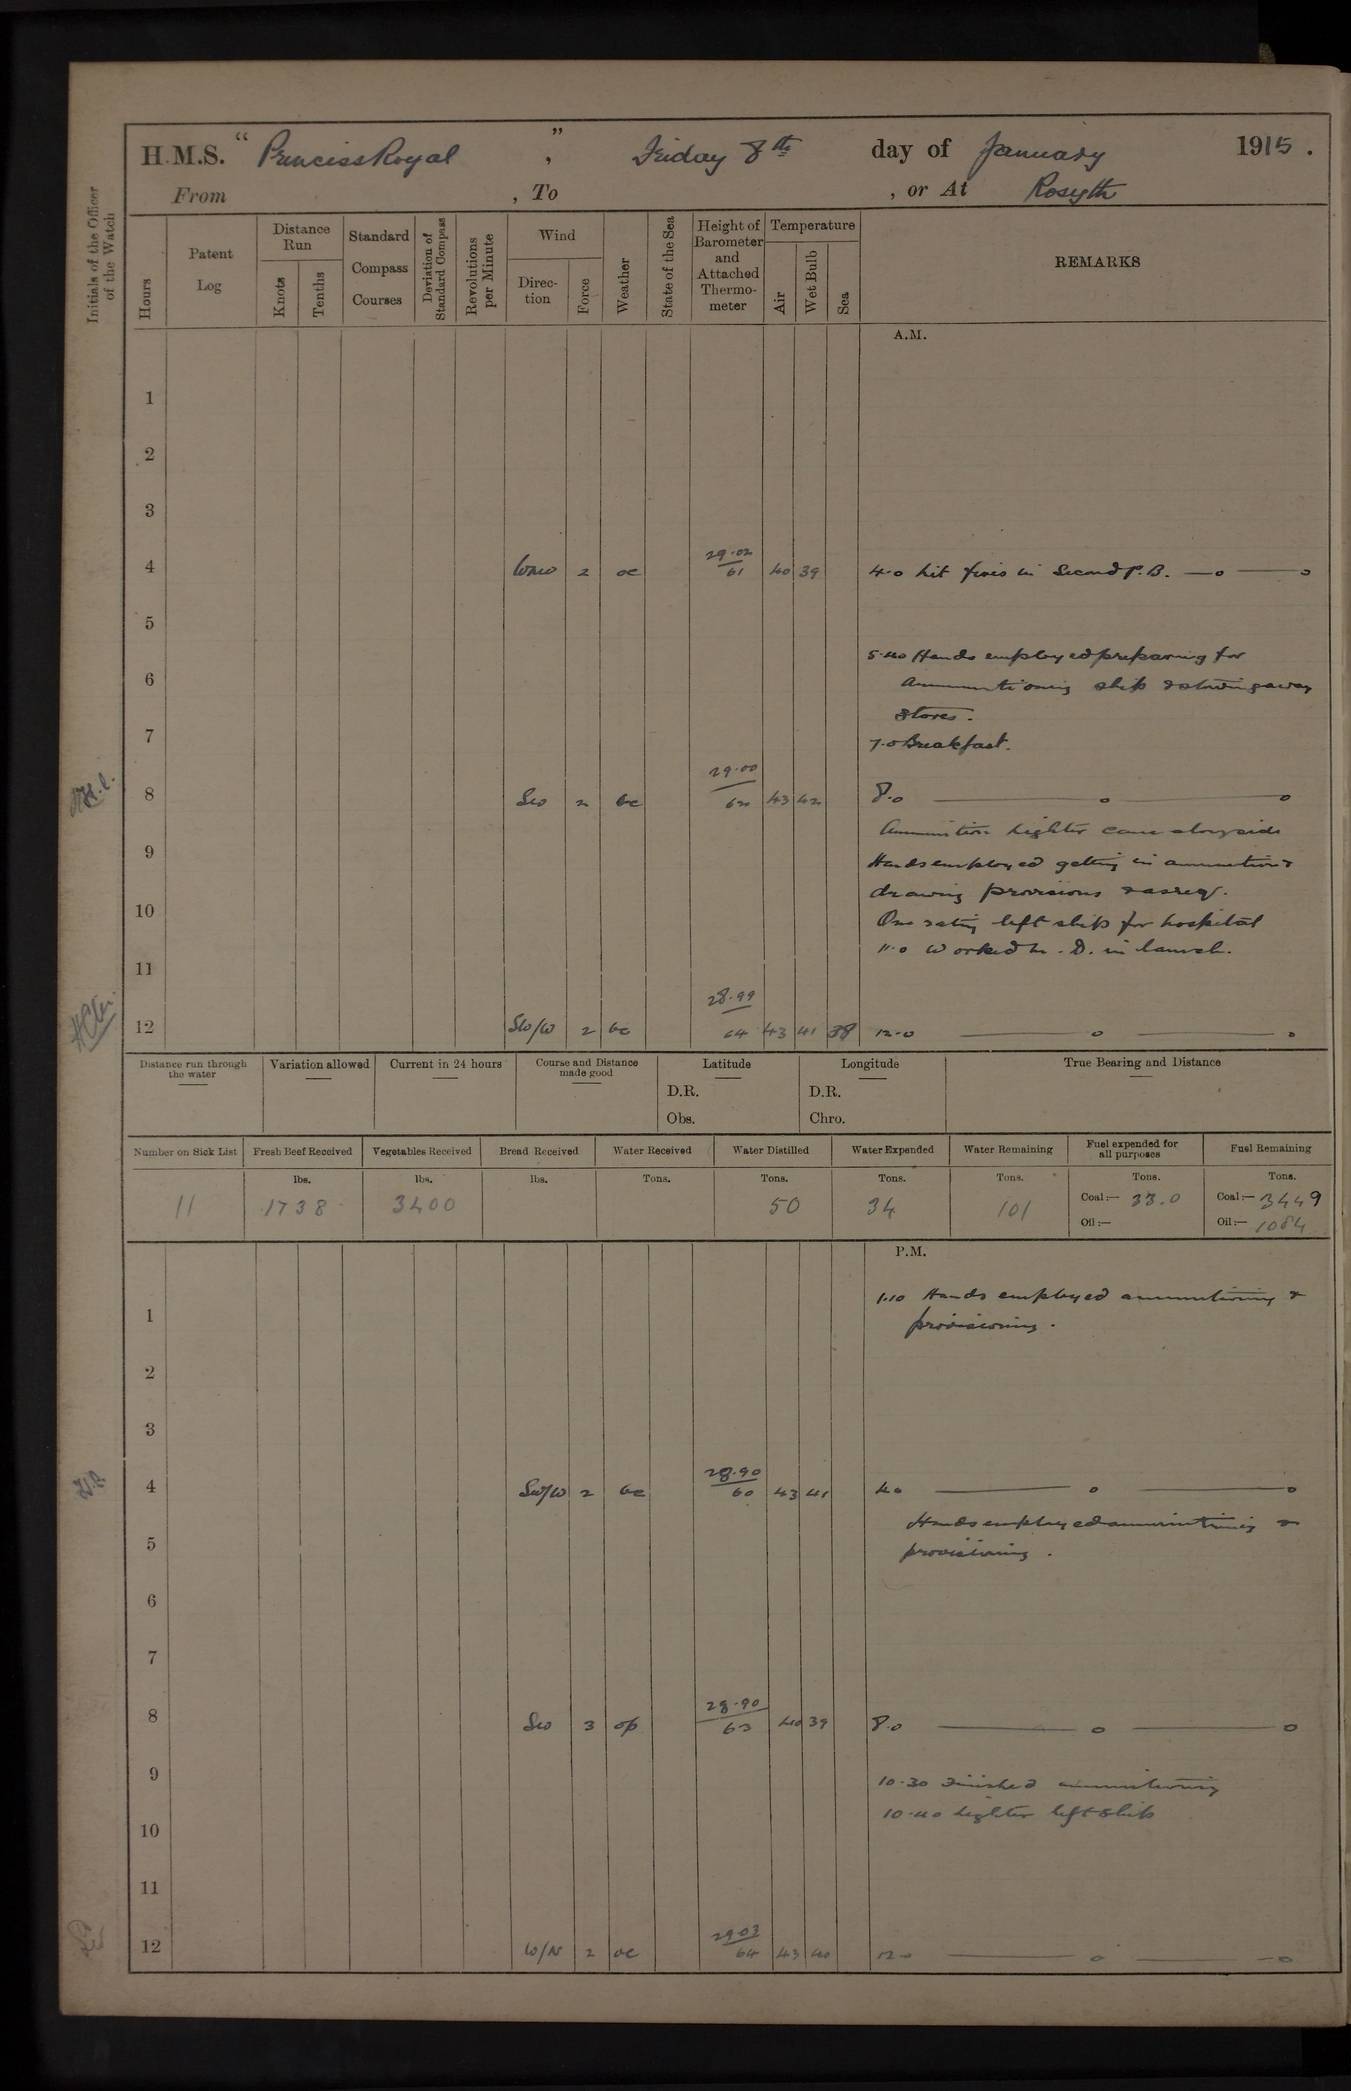 H.M.S. "Princess Royal", Friday 8th day of January 1915.
From , To , or At Rosyth
Initials of the Officer of the Watch
Hours
Patent Log
Distance Run
Knots
Tenths
Standard Compass Courses
Deviation of Standard Compass
Revolutions per Minute
Wind
Direc-tion
Force
Weather
State of the Sea
Height of Barometer and Attached Thermo-meter
Temperature
Air
Wet Bulb
Sea
REMARKS
A.M.
1
2
3
4 WNW 2 oc 29.02 61 40 39 4.0 Lit fires in Second P.B.
5
5.40 Hands employed preparing for
6 Ammunitioning ship & stowing away
stores.
7 7.0 Breakfast.
8 SW 2 bc 29.00 62 43 42 8.0
Ammunition lighter came alongside
9 Hands employed getting in ammunition &
drawing provisions & as req.
10 One rating left ship for hospital
11.0 Worked in launch.
11
12 SW/W 2 bc 28.99 64 43 41 38 12.0
Distance run through the water
Variation allowed
Current in 24 hours
Course and Distance made good
Latitude
D.R.
Obs.
Longitude
D.R.
Chro.
True Bearing and Distance
Number on Sick List
11
Fresh Beef Received
lbs.
1738
Vegetables Received
lbs.
3400
Bread Received
lbs.
Water Received
Tons.
Water Distilled
Tons.
50
Water Expended
Tons.
34
Water Remaining
Tons.
101
Fuel expended for all purposes
Tons.
Coal:— 33.0
Oil:—
Fuel Remaining
Tons.
Coal:— 3449
Oil:— 1084
P.M.
1.10 Hands employed ammunitioning &
1 provisioning.
2
3
4 SW/W 2 bc 28.90 60 43 41 4.0
Hands employed ammunitioning &
5 provisioning.
6
7
8 SW 3 op 28.90 63 40 39 8.0
9 10.30 Finished ammunitioning
10.40 Lighter left ship
10
11
12 W/N 2 oc 29.03 64 43 40 12.0